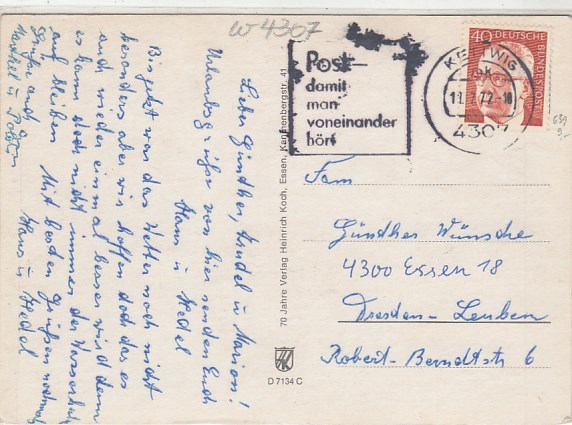 W 4307
Post-
damit
man
voneinander
hört
KETTWIG
11.7.72-18
4307
40 DEUTSCHE
BUNDESPOST
Fam
Günther Wünsche
4300 Essen 18
Dresden-Leuben
Robert-Berndtstr 6
70 Jahre Verlag Heinrich Koch, Essen, Kanonenbergstr. 41
D 7134 C
Liebe Günther, Trudel u Marion!
Urlaubsgrüße von hier senden Euch
Hans u Hedel
Bis jetzt war das Wetter noch nicht
besonders aber wir hoffen doch das es
auch wieder einmal besser wird denn
es kann doch nicht immer der Wasserhahn
auf bleiben Mit besten Grüßen nochmals
Hans u Hedel
Grüße auch